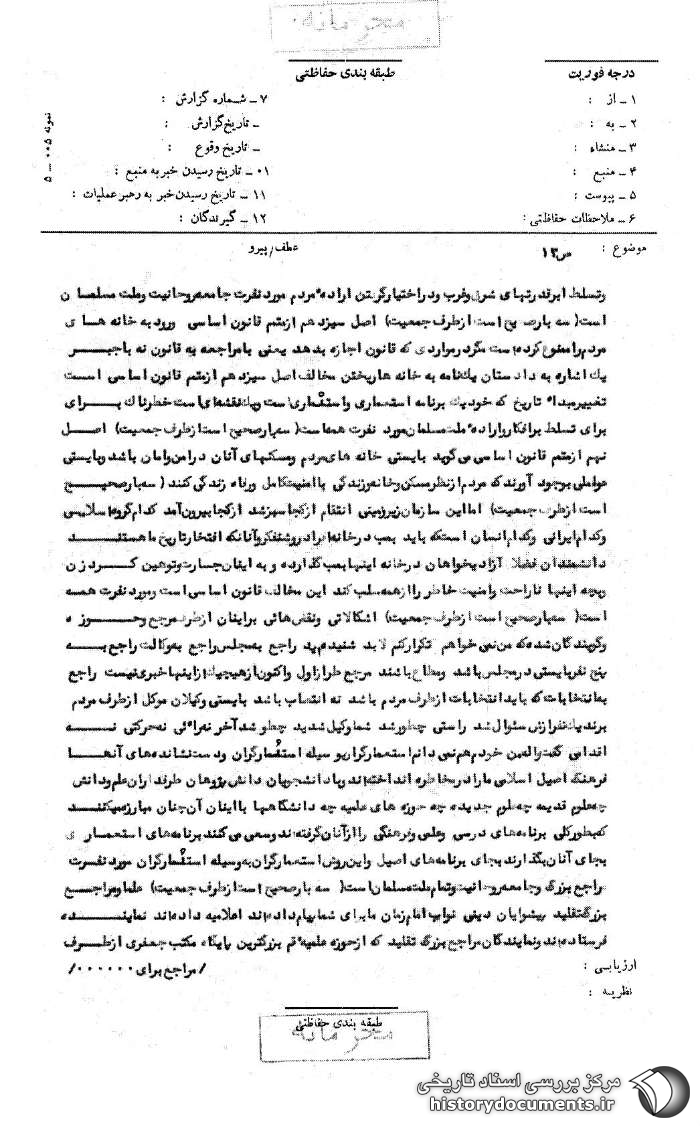 محرمانه
درجه فوریت
طبقه بندی حفاظتی
۱ ـ از :
۷ ـ شماره گزارش :
۲ ـ به :
ـ تاریخ گزارش :
۳ ـ منشاء :
ـ تاریخ وقوع :
۴ ـ منبع :
۰۱ ـ تاریخ رسیدن خبر به منبع :
۵ ـ پیوست :
۱۱ ـ تاریخ رسیدن خبر به رهبر عملیات :
۶ ـ ملاحظات حفاظتی :
۱۲ ـ گیرندگان :
نمونه ۰۰۵ ـ ۵
موضوع : ص۱۳ عطف/پیرو
وتسلط ابرقدرتهای شرق وغرب ودراختیارگرفتن اراده مردم مورد نفرت جامعه روحانیت وملت مسلمان
است( سه بار صحیح است ازطرف جمعیت) اصل سیزد هم ازمتمم قانون اساسی ورود به خانه های
مردم راممنوع کرده است مگردرمواردی که قانون اجازه بدهد یعنی بامراجعه به قانون نه باجبر
یك اشاره به دادستان یك نامه به خانه هاریختن مخالف اصل سیزد هم ازمتمم قانون اساسی است
تغییرمبداء تاریخ که خودیك برنامه استعماری واستثماری است ویك نقشه ای است خطرناك برای
برای تسلط برافکارواراده ملت مسلمان مورد نفرت همه است( سه بارصحیح است ازطرف جمعیت) اصل
نهم ازمتمم قانون اساسی می گوید بایستی خانه های مردم ومسکنهای آنان درامن وامان باشد وبایستی
عواملی بوجود آورند که مردم ازنظر مسکن وخانه وزندگی باامنیت کامل ورفاه زندگی کنند ( سه بار صحیح
است ازطرف جمعیت) امااین سازمان زیرزمینی انتقام ازکجا سرزشد ازکجا بیرون آمد کدام گروه اسلامی
وکدام ایرانی وکدام انسان است که باید بمب درخانه افراد روشنفکروآنانکه افتخارتاریخ ما هستند
دانشمندان فضلا آزادیخواهان درخانه اینها بمب گذارده و به ایشان جسارت وتوهین کرد زن
وبچه اینها ناراحت وامنیت خاطر راازهمه سلب کند این مخالف قانون اساسی است ومورد نفرت همه
است( سه بارصحیح است ازطرف جمعیت) اشکالاتی ونقص هائی براینان ازطرف مرجع وحوزه
وگویندگان شده که من نمی خواهم تکرارکنم لابد شنیدهاید راجع به مجلس راجع به وکالت راجع به
پنج نفربایستی درمجلس باشد ومطاع باشند مرجع طرازاول واکنون ازهیچیك ازاینها خبری نیست راجع
به انتخابات که باید انتخابات ازطرف مردم باشد نه انتصاب باشد بایستی وکیلان موکل ازطرف مردم
برند یك نفرازش سئوال شد راستی چطورشد شماوکیل شدید چطو شد آخر نه رائی نه حرکتی نه
اقدامی گفت والله من خودم هم نمی دانم استعمارگران بوسیله استثمارگران ودست نشانده های آنها
فرهنگ اصیل اسلامی مارا درمخاطره انداخته اند وبا دانشجویان دانش پژوهان طرفداران علم ودانش
چه علوم قدیمه چه علوم جدیده چه حوزه های علمیه چه دانشگاهها بااینان آن چنان مبارزه میکنند
که بطورکلی برنامه های درسی وعلمی وفرهنگی راازآنان گرفته اند وسعی می کنند برنامه های استعماری
بجای آنان بگذارند بجای برنامه های اصیل واین روش استعمارگران به وسیله استثمارگران مورد نفرت
مراجع بزرگ وجامعه روحانیت وتمام ملت مسلمان است( سه بار صحیح است ازطرف جمعیت) علماومراجع
بزرگ تقلید پیشوایان دینی نواب امام زمان مابرای شما پیام داده اند اعلامیه داده اند نماینده
فرستاده اند ونمایندگان مراجع بزرگ تقلید که ازحوزه علمیه قم بزرگترین پایگاه مکتب جعفری ازطرف
/ مراجع برای ۰۰۰۰۰۰/
ارزیابی :
نظریه :
طبقه بندی حفاظتی
محرمانه
مرکز بررسی اسناد تاریخی
historydocuments.ir